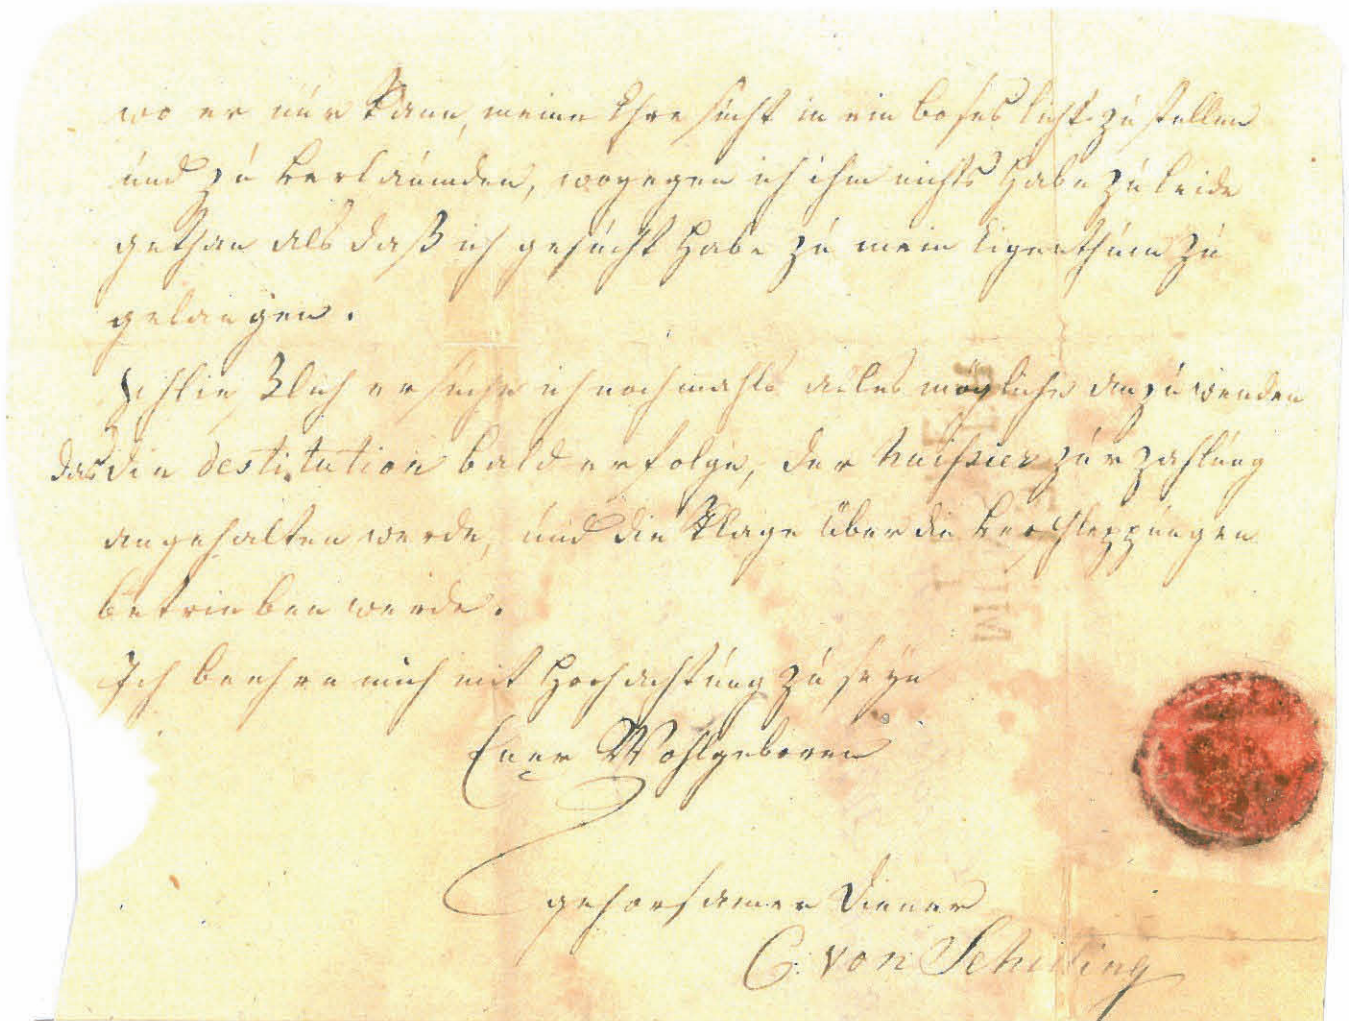 wo er nur kann, meine Ehre sucht in ein boses licht zu stellen
und zu verläumden, wogegen ich ihm nichts habe zu leide
gethan als daß ich gesucht habe zu mein Eigenthum zu
gelangen.
Schließlich ersuche ich nochmahls alles mögliche anzuwenden
das die destitution bald erfolge, der huissier zur zahlung
angehalten werde, und die Klage über die verschleppungen
betrieben werde.
Ich beehre mich mit Hochachtung zu seyn
Euer Wohlgeboren
gehorsamer Diener
C. von